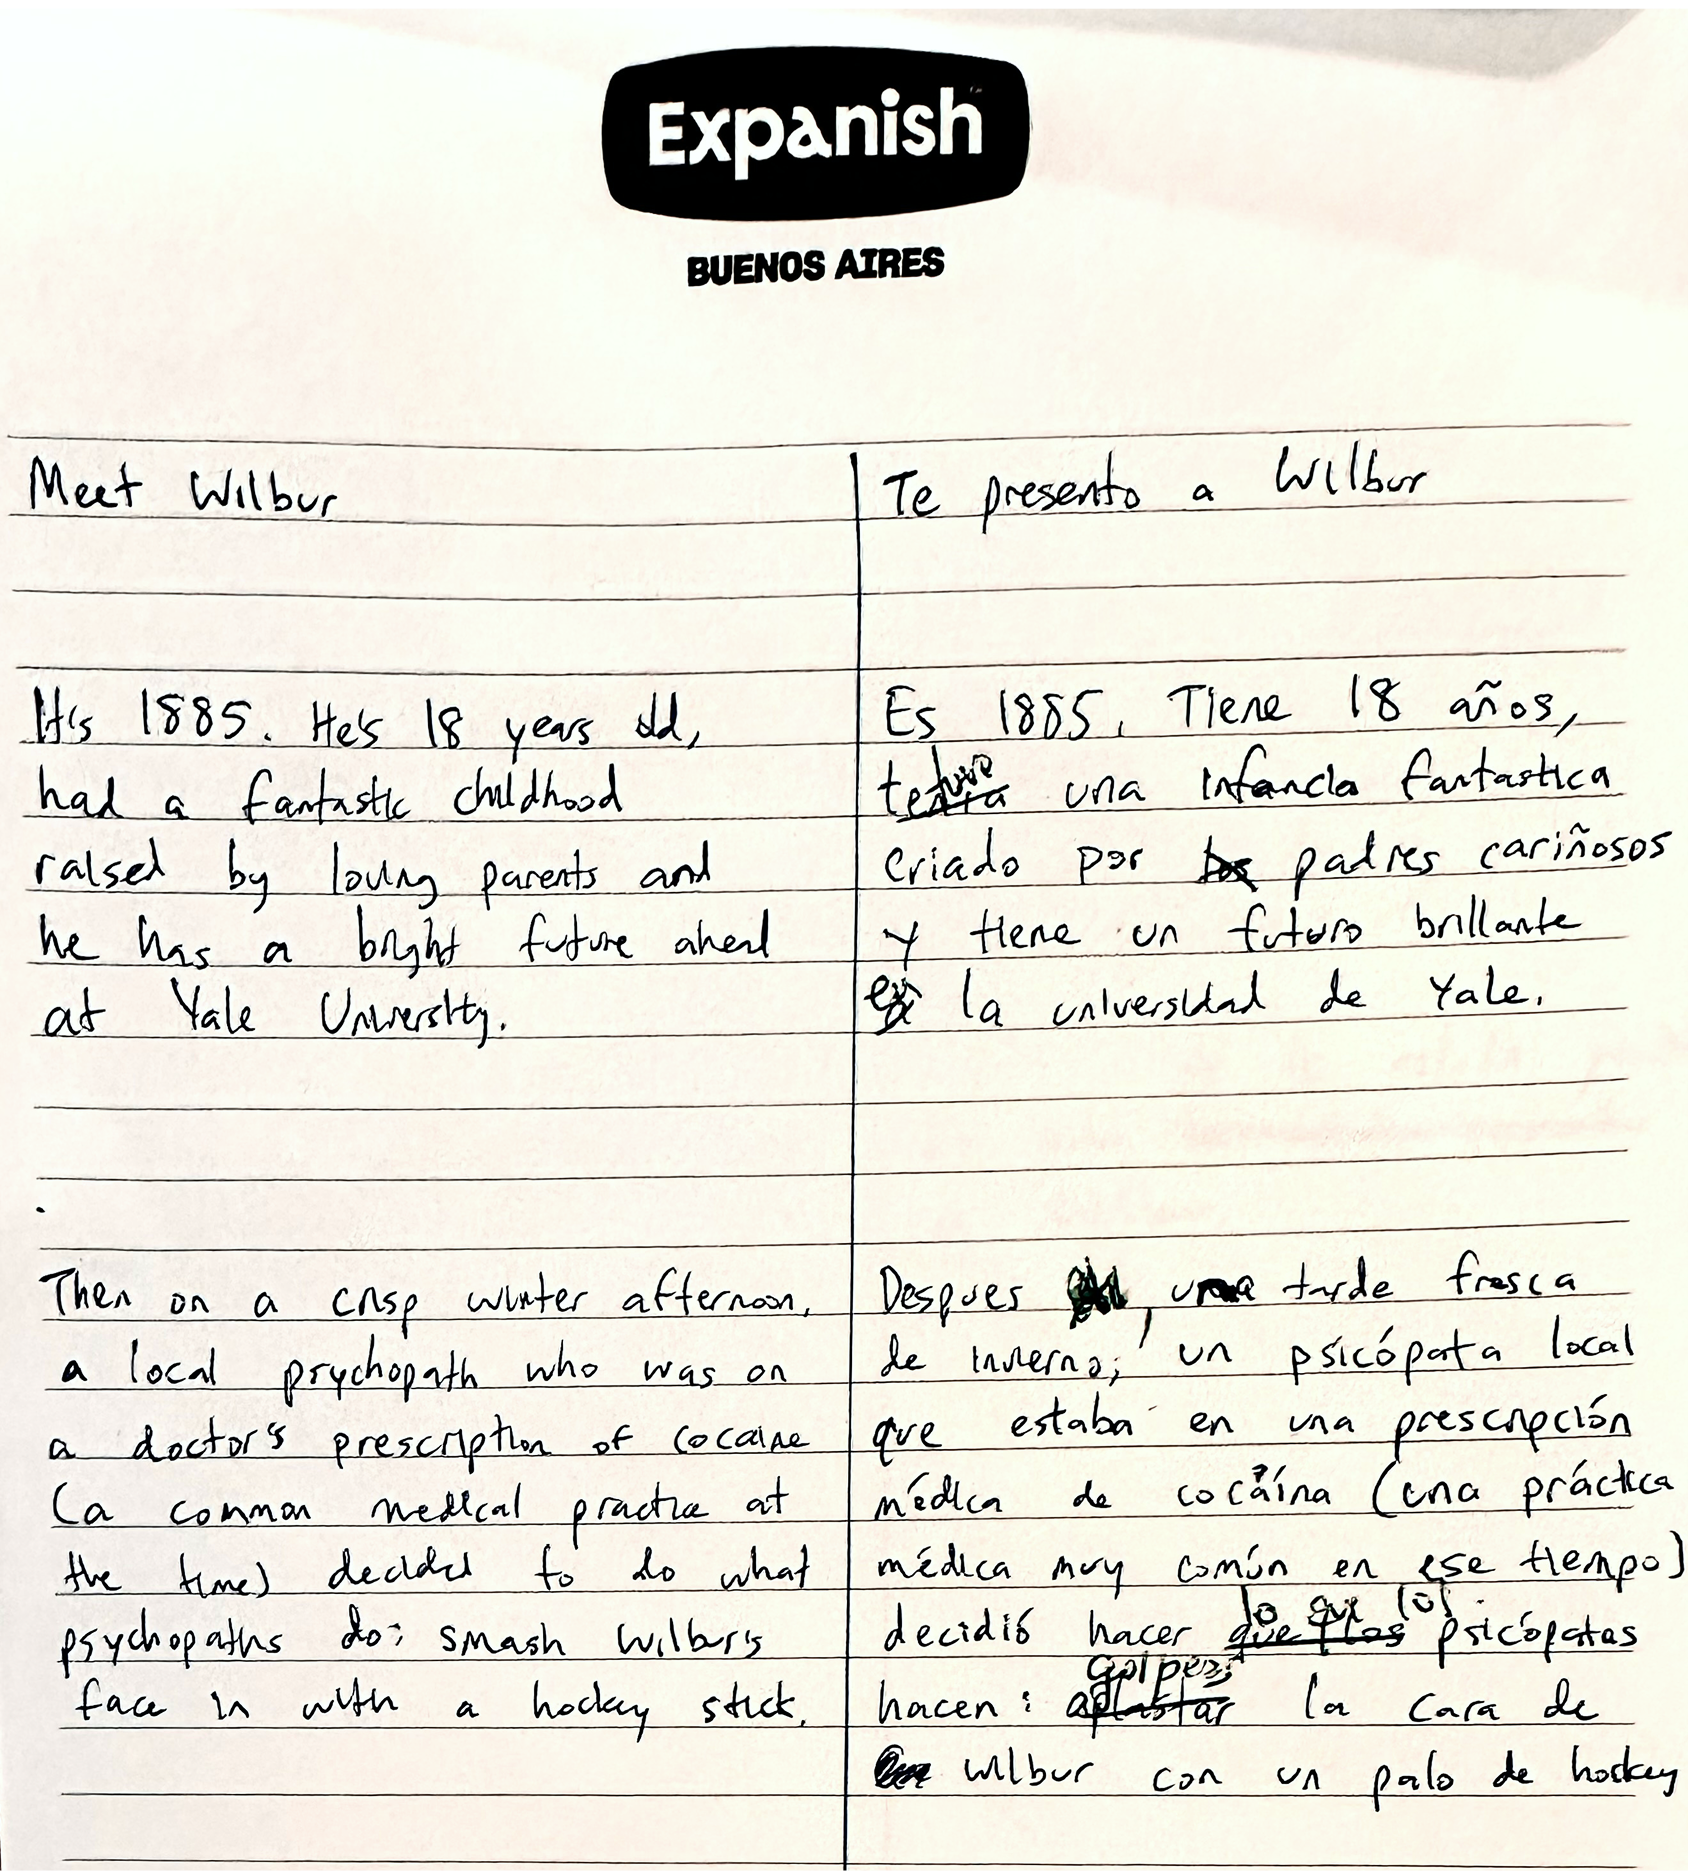 Expanish
BUENOS AIRES
Meet Wilbur
It's 1885. He's 18 years old,
had a fantastic childhood
raised by loving parents and
he has a bright future ahead
at Yale University.
Then on a crisp winter afternoon,
a local psychopath who was on
a doctor's prescription of cocaine
(a common medical practice at
the time) decided to do what
psychopaths do: smash Wilbur's
face in with a hockey stick.
Te presento a Wilbur
Es 1885. Tiene 18 años,
tuvo una infancia fantastica
criado por padres cariñosos
y tiene un futuro brillante
en la universidad de Yale.
Despues, una tarde fresca
de invierno, un psicópata local
que estaba en una prescripción
médica de cocaína (una práctica
médica muy común en ese tiempo)
decidió hacer lo que los psicópatas
hacen: golpear la cara de
Wilbur con un palo de hockey